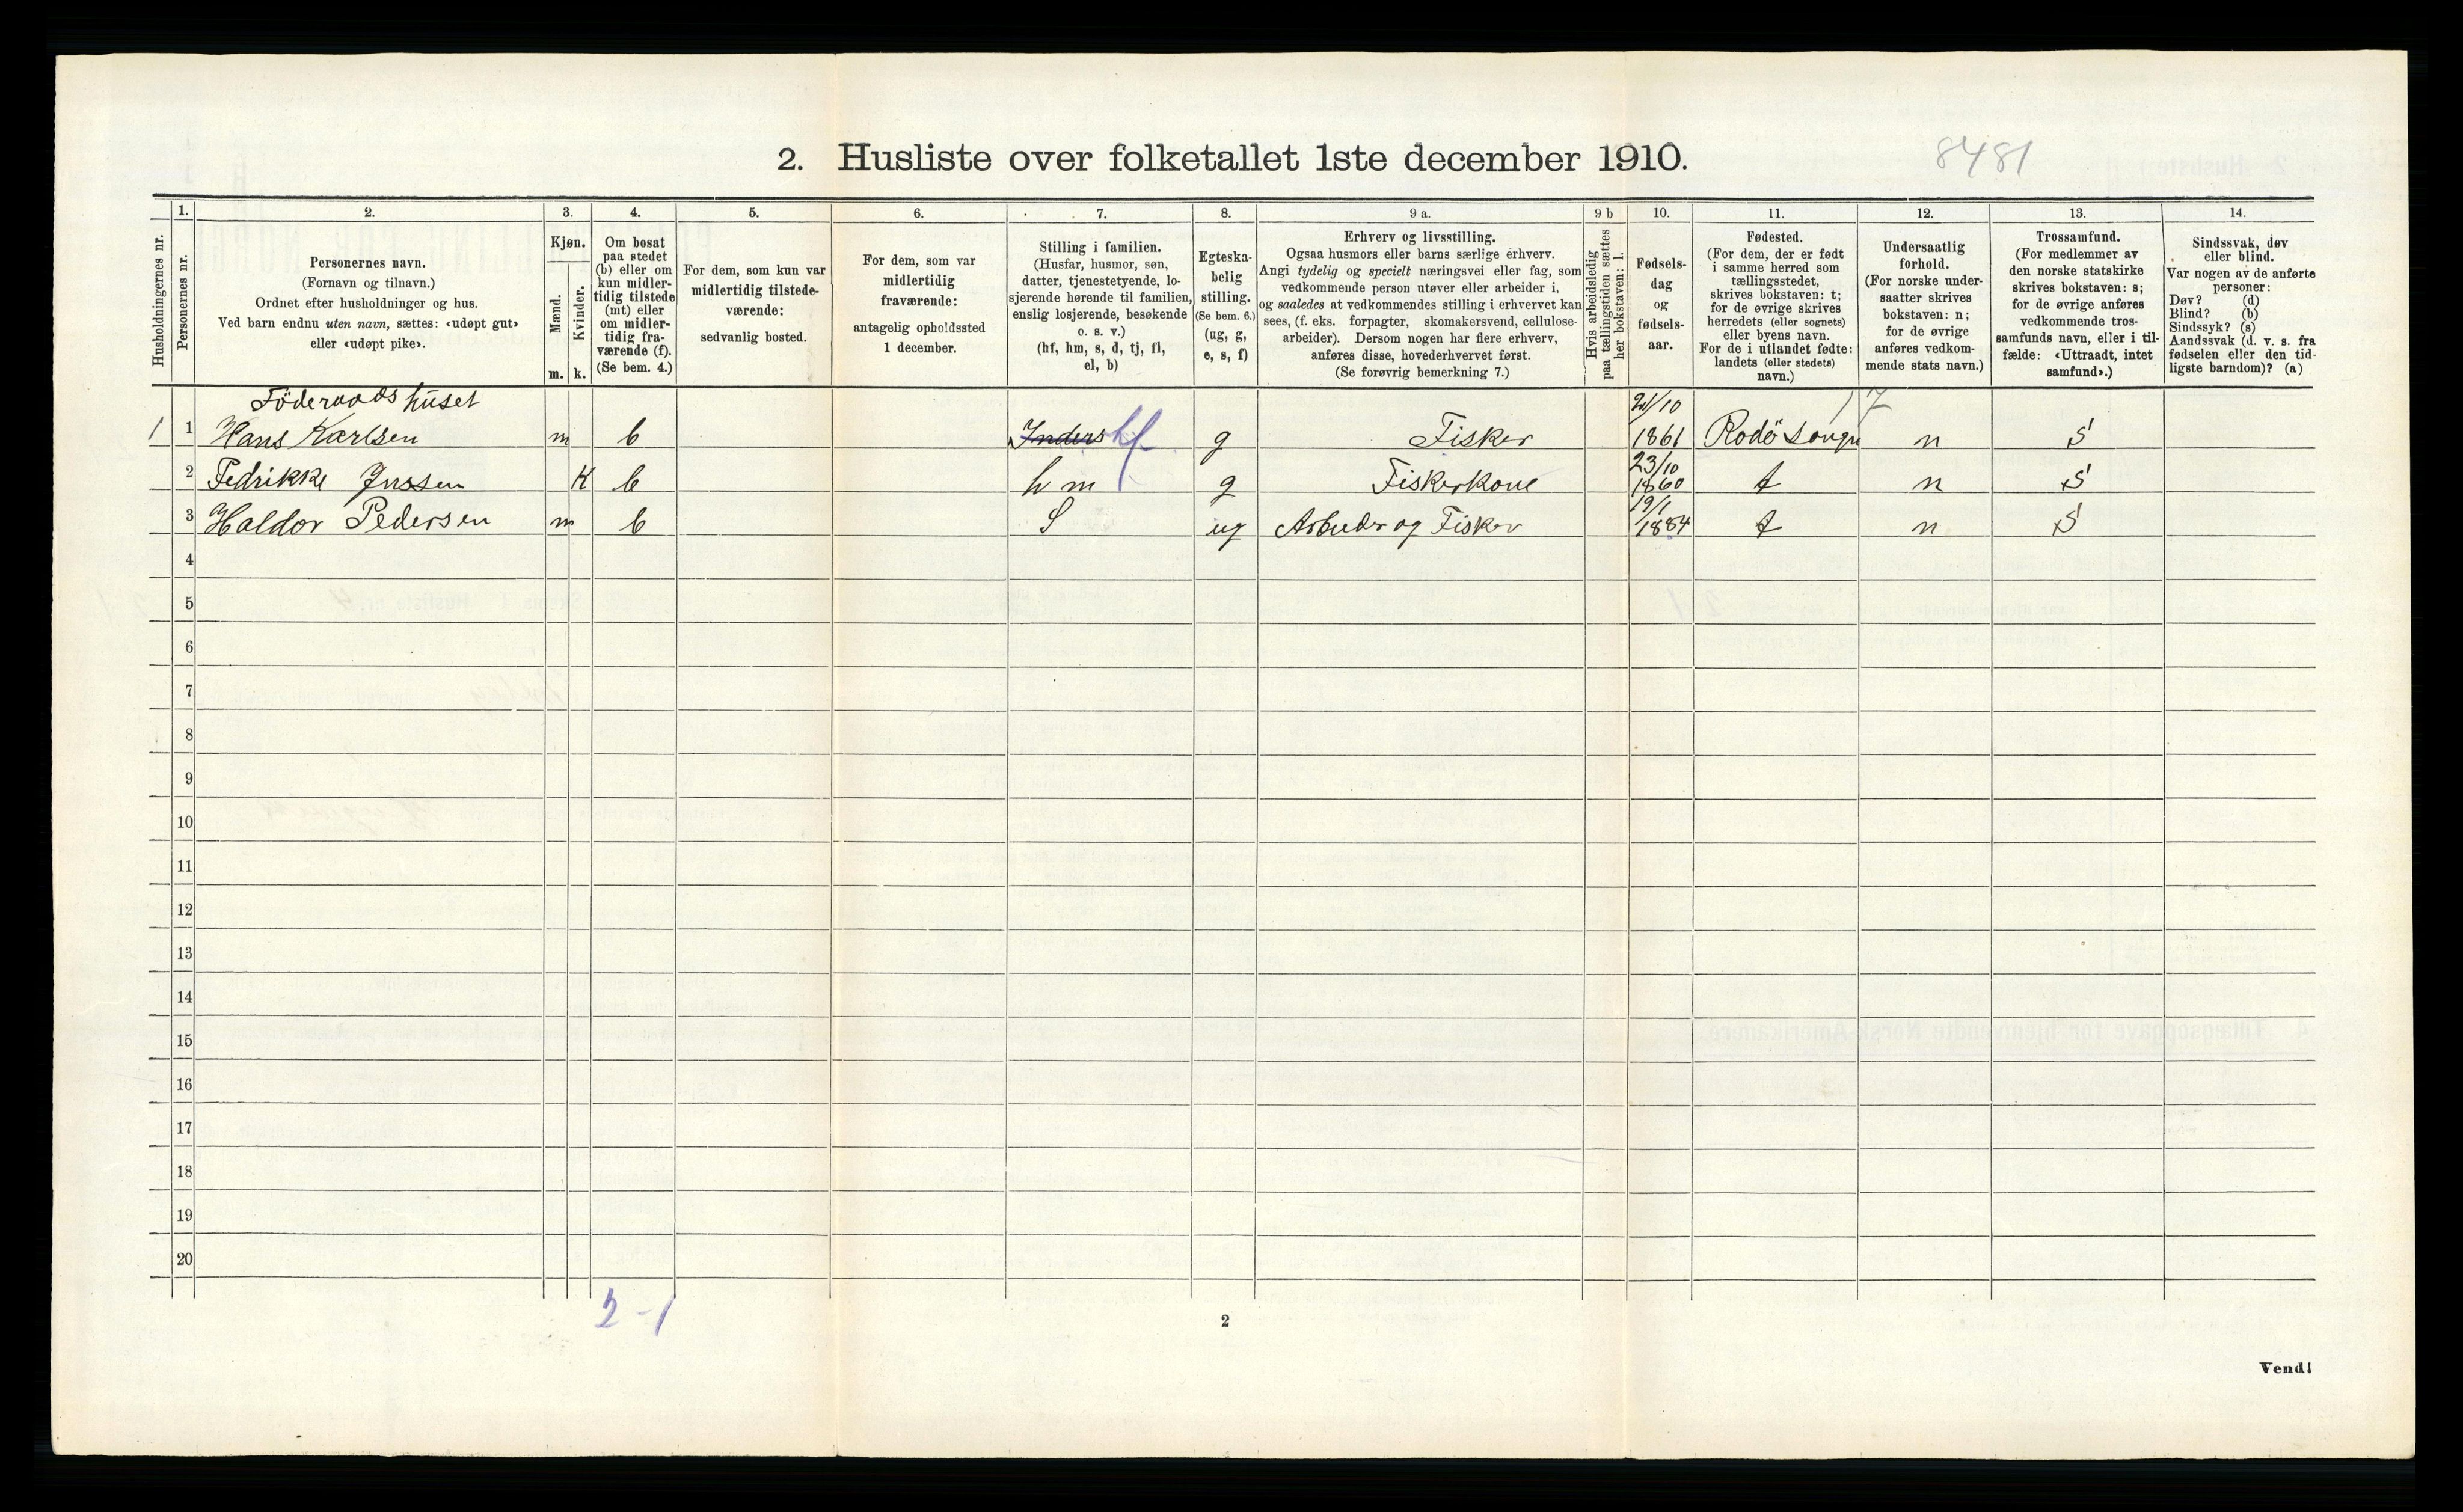 2. Husliste over folketallet 1ste december 1910.
8481
Husholdningernes nr.
1.
Personernes nr.
2.
Personernes navn.
(Fornavn og tilnavn.)
Ordnet efter husholdninger og hus.
Ved barn endnu uten navn, sættes: «udøpt gut»
eller «udøpt pike».
3.
Kjøn.
Mænd.
Kvinder.
m. k.
4.
Om bosat
paa stedet
(b) eller om
kun midler-
tidig tilstede
(mt) eller
om midler-
tidig fra-
værende (f).
(Se bem. 4.)
5.
For dem, som kun var
midlertidig tilstede-
værende:
sedvanlig bosted.
6.
For dem, som var
midlertidig
fraværende:
antagelig opholdssted
1 december.
7.
Stilling i familien.
(Husfar, husmor, søn,
datter, tjenestetyende, lo-
sjerende hørende til familien,
enslig losjerende, besøkende
o. s. v.)
(hf, hm, s, d, tj, fl,
el, b)
8.
Egteska-
belig
stilling.
(Se bem. 6.)
(ug, g,
e, s, f)
9 a.
Erhverv og livsstilling.
Ogsaa husmors eller barns særlige erhverv.
Angi tydelig og specielt næringsvei eller fag, som
vedkommende person utøver eller arbeider i,
og saaledes at vedkommendes stilling i erhvervet kan
sees, (f. eks. forpagter, skomakersvend, cellulose-
arbeider). Dersom nogen har flere erhverv,
anføres disse, hovederhvervet først.
(Se forøvrig bemerkning 7.)
9 b
Hvis arbeidsledig
paa tællingstiden sættes
her bokstaven: l.
10.
Fødsels-
dag
og
fødsels-
aar.
11.
Fødested.
(For dem, der er født
i samme herred som
tællingsstedet,
skrives bokstaven: t;
for de øvrige skrives
herredets (eller sognets)
eller byens navn.
For de i utlandet fødte:
landets (eller stedets)
navn.)
12.
Undersaatlig
forhold.
(For norske under-
saatter skrives
bokstaven: n;
for de øvrige
anføres vedkom-
mende stats navn.)
13.
Trossamfund.
(For medlemmer av
den norske statskirke
skrives bokstaven: s;
for de øvrige anføres
vedkommende tros-
samfunds navn, eller i til-
fælde: «Uttraadt, intet
samfund».)
14.
Sindssvak, døv
eller blind.
Var nogen av de anførte
personer:
Døv? (d)
Blind? (b)
Sindssyk? (s)
Aandssvak (d. v. s. fra
fødselen eller den tid-
ligste barndom)? (a)
Föderaadshuset 17
1 1 Hans Karlsen m b hf g Fisker 21/10 1861 Rodö Songn n S
2 Fedrikke Jnssen K b hm g Fiskerkone 23/10 1860 t n S
3 Haldor Pedersen m b S ug Arbeider og Fisker 19/1 1884 t n S
4
5
6
7
8
9
10
11
12
13
14
15
16
17
18
19
20
2-1
2
Vend!